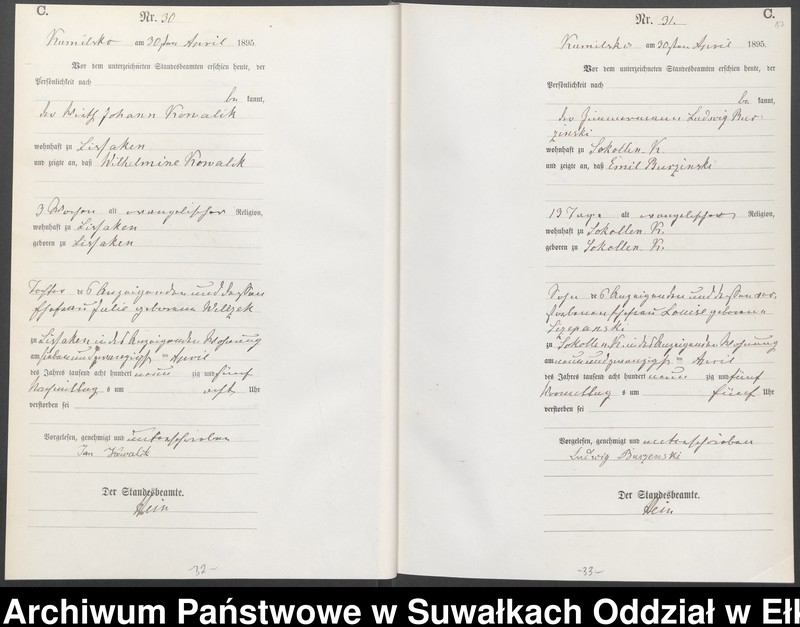 C.
Nr. 30
Kumilsko am 30ten April 1895.
Vor dem unterzeichneten Standesbeamten erschien heute, der
Persönlichkeit nach
be kannt,
der Wirth Johann Kowalik
wohnhaft zu Lissaken
und zeigte an, daß Wilhelmine Kowalik
3 Wochen alt evangelischer Religion,
wohnhaft zu Lissaken
geboren zu Lissaken
Tochter des Anzeigenden und dessen
Ehefrau Julie geborene Willzek
zu Lissaken in des Anzeigenden Wohnung
am sieben und zwanzigsten April
des Jahres tausend acht hundert neun zig und fünf
Nachmittag s um acht Uhr
verstorben sei
Vorgelesen, genehmigt und unterschrieben
Jan Kowalik
Der Standesbeamte.
Hein
-32-
C.
Nr. 31.
Kumilsko am 30ten April 1895.
Vor dem unterzeichneten Standesbeamten erschien heute, der
Persönlichkeit nach
be kannt,
der Zimmermann Ludwig Bur-
zinski
wohnhaft zu Sokollen K.
und zeigte an, daß Emil Burzinski
13 Tage alt evangelischer Religion,
wohnhaft zu Sokollen K.
geboren zu Sokollen K.
Sohn des Anzeigenden und dessen ver-
storbenen Ehefrau Louise geborene
Sczepanski
zu Sokollen K. in des Anzeigenden Wohnung
am neun und zwanzigsten April
des Jahres tausend acht hundert neun zig und fünf
Vormittag s um fünf Uhr
verstorben sei
Vorgelesen, genehmigt und unterschrieben
Ludwig Burzenski
Der Standesbeamte.
Hein
-33-
Archiwum Państwowe w Suwałkach Oddział w Ełk